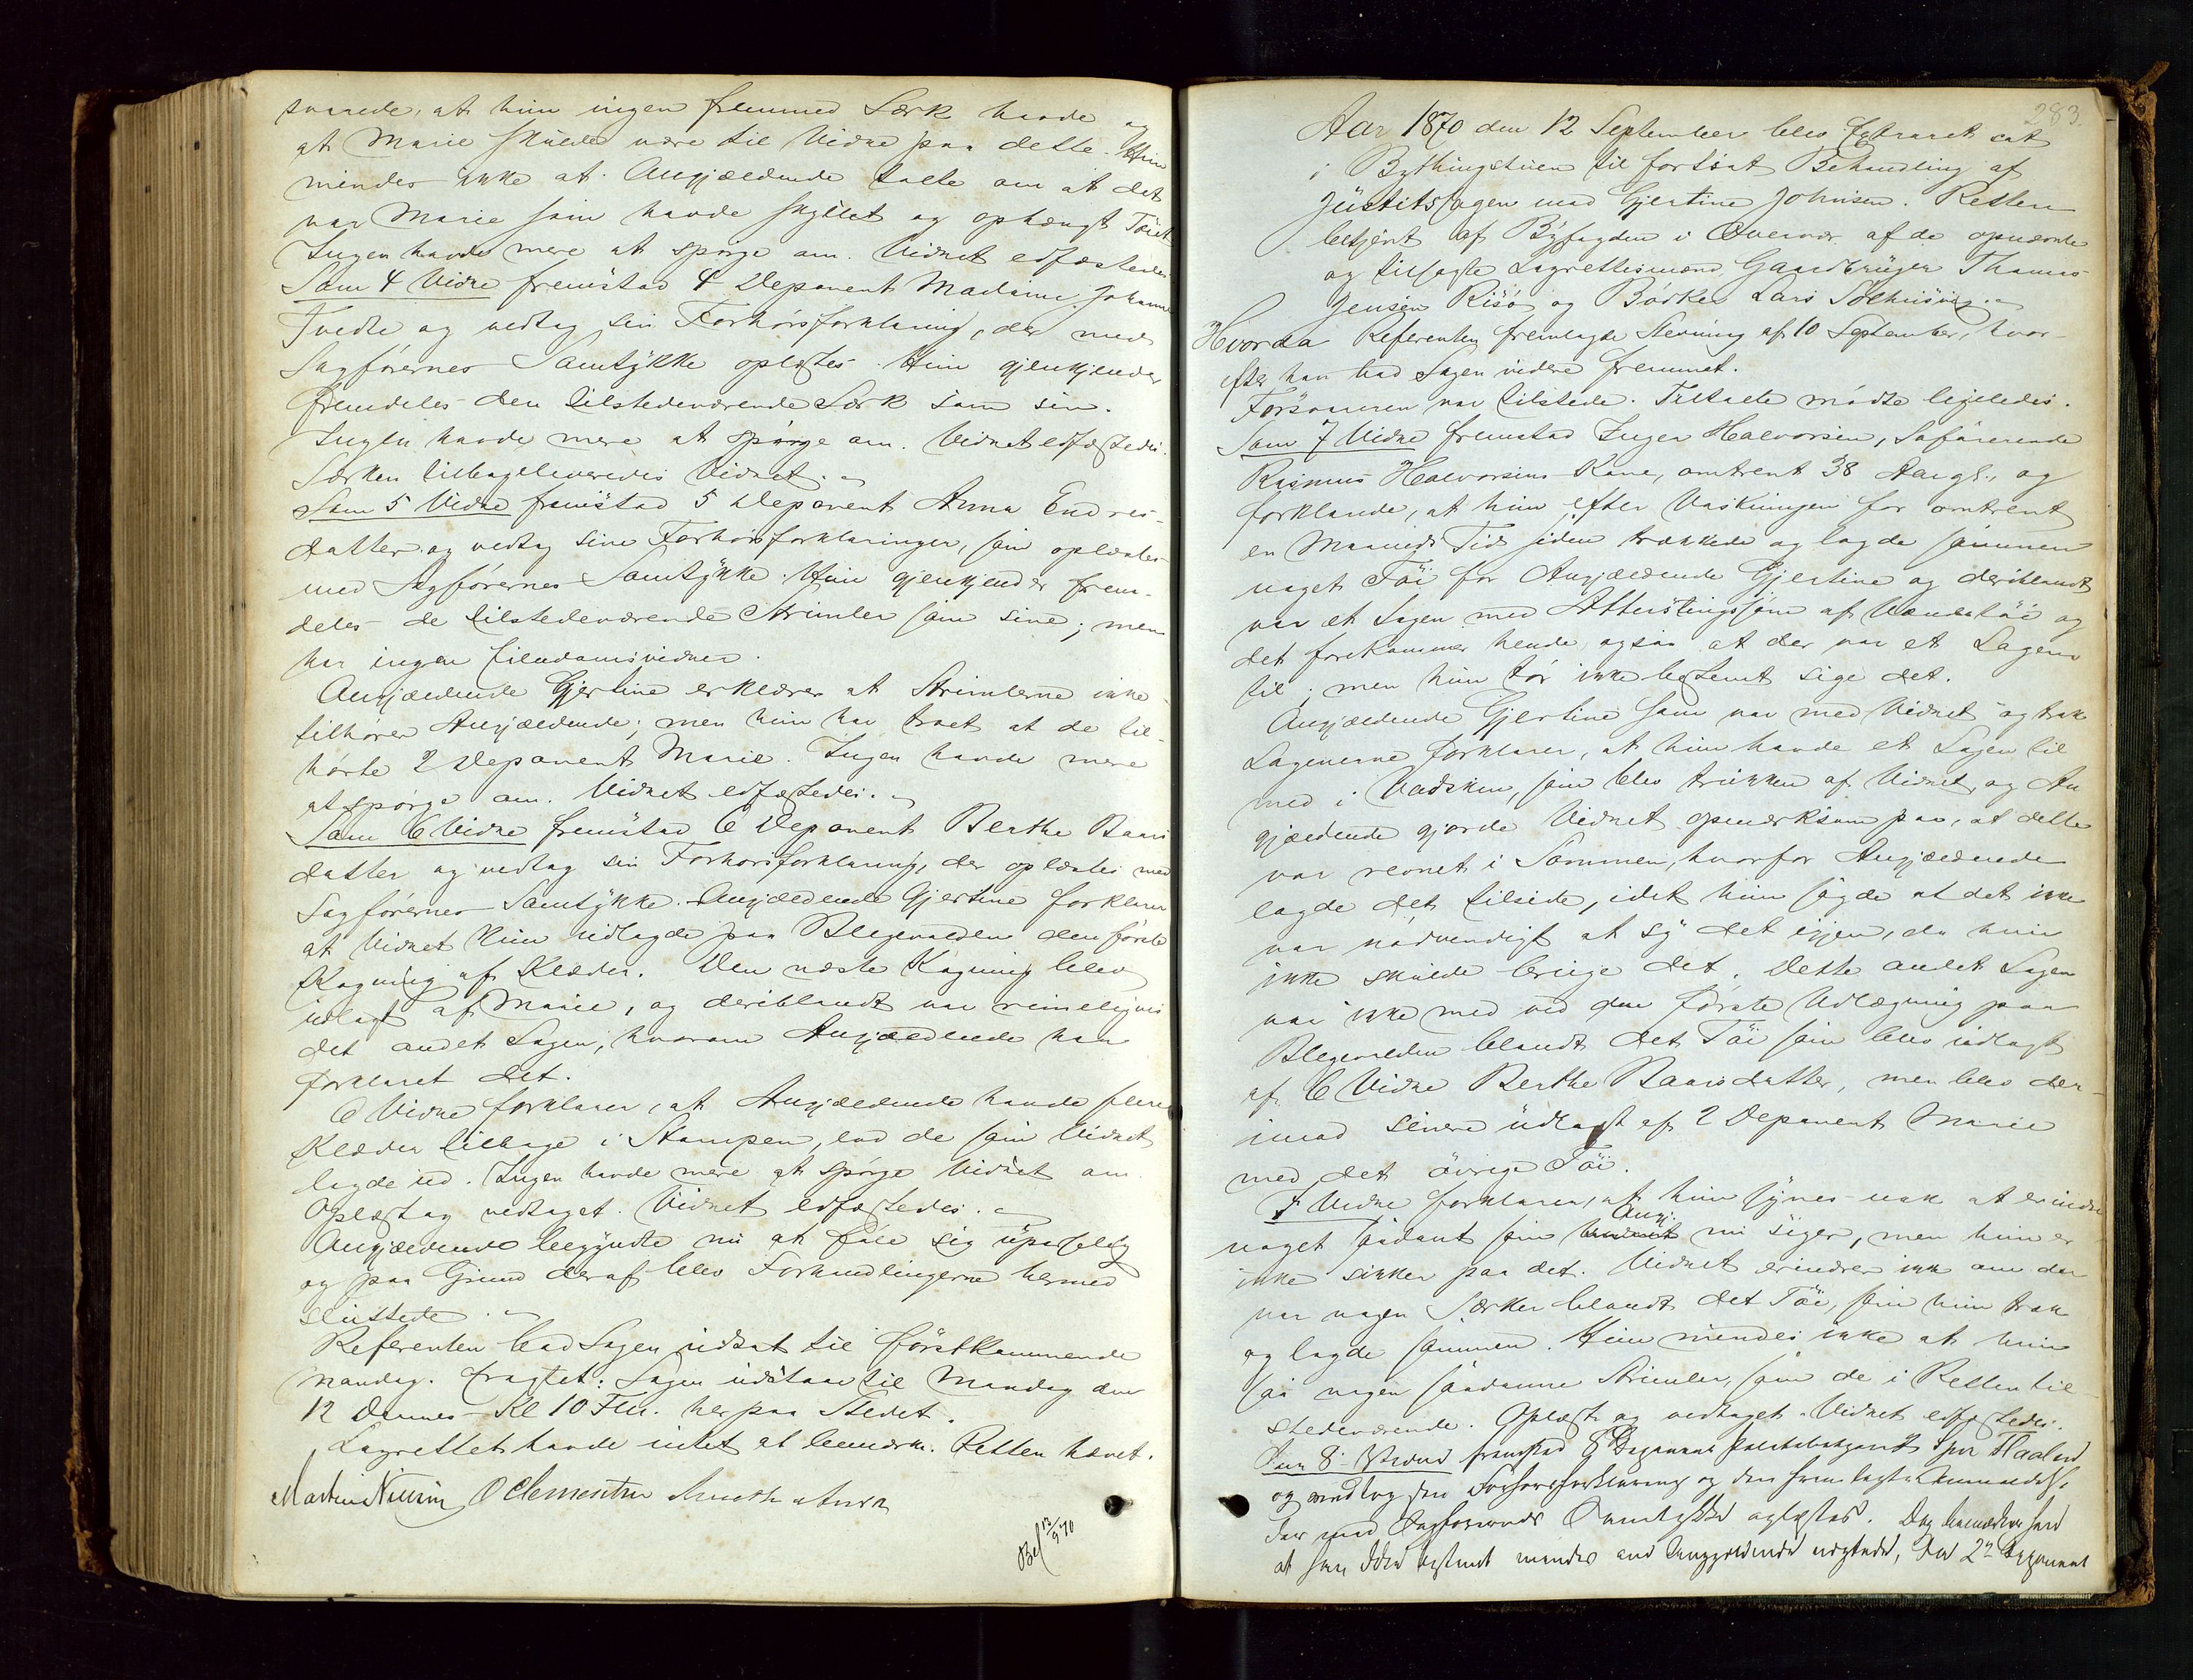 svarede, at hun ingen fremmed Særk havde og
at Marie skulde være til Vidne paa dette. Hun
mindes ikke at Angjældende talte om at det
var Marie som havde skyllet og ophængt Tøiet
Ingen havde mere at spørge om. Vidnet edfæstedes
Som 4 Vidne fremstod 4 Deponent Madame Johanne
Tvedte og vedtog sin Forhørsforklaring, der med
Sagførernes Samtykke oplæstes. Hun gjenkjender
fremdeles den tilstedeværende Særk som sin.
Ingen havde mere at spørge om. Vidnet edfæstedes.
Særken tilbageleveredes Vidnet.
Som 5 Vidne fremstod 5 Deponent Anna Endres-
datter og vedtog sine Forhørsforklaringer, som oplæstes
med Sagførernes Samtykke. Hun gjenkjender frem-
deles de tilstedeværende Strimler som sine; men
har ingen Eiendomsvidner.
Angjældende Gjertine erklærer at Strimlerne ikke
tilhører Angjældende; men hun har troet at de til-
hørte 2 Deponent Marie. Ingen havde mere
at spørge om. Vidnet edfæstedes.
Som 6 Vidne fremstod 6 Deponent Berthe Baars
datter og vedtog sin Forhørsforklaring, der oplæstes med
Sagførernes Samtykke. Angjældende Gjertine forklarer
at Vidnet kun udlagde paa Blegevolden den første
Kogning af Klæder. Den næste Kogning blev
udlagt af Marie, og deriblandt var rimeligvis
det andet Lagen, hvorom Angjældende har
forklaret det.
6 Vidne forklarer, at Angjældende havde flere
Klæder tilbage i Stampen, end de som Vidnet
lagde ud. Ingen havde mere at spørge Vidnet om
Oplæst og vedtaget. Vidnet edfæstedes.
Angjældende begyndte nu at føle sig upasselig
og paa Grund deraf blev Forhandlingerne hermed
sluttede.
Referenten bad Sagen udsat til førstkommende
Mandag. Eragtet: Sagen udstaar til Mandag den
12 Dennes Kl 10 Fm. her paa Stedet.
Lagrettet havde intet at bemærke. Retten hævet.
Martin Nilsen O Clementsen
Bef 13/9 70
283.
Aar 1870 den 12 September blev Extraret sat
i Bythingstuen til fortsat Behandling af
Justitssagen mod Gjertine Johnsen. Retten
betjent af Byfogden i Overvær af de opnævnte
og tilsagte Lagrettesmænd Gaardbruger Thomas
Jensen Risø og Bødker Lars
Hvorda Referenten fremlagde Stevning af 10 September, hvor-
efter han bad Sagen videre fremmet.
Forsvareren var tilstede. Tiltalte mødte ligeledes.
Som 7 Vidne fremstod Inger Halvorsen, Søfarende
Rasmus Halvorsens Kone, omtrent 38 Aar gl., og
forklarede, at hun efter Vaskningen for omtrent
en Maaneds Tid siden trækkede og lagde sammen
noget Tøi for Angjældende Gjertine og deriblandt
var et Lagen med Attersting søm af Vendetøi og
det forekommer hende ogsaa at der var et Lagen
til; men hun tør ikke bestemt sige det.
Angjældende Gjertine som var med Vidnet og trak
Lagenerne forklarer, at hun havde et Lagen til
med i Vadsken, som blev trukken af Vidnet, og An
gjældende gjorde Vidnet opmærksom paa, at dette
var revnet i Sømmen, hvorfor Angjældende
lagde det tilside, idet hun sagde at det ikke
var nødvendigt at sy det igjen, da hun
ikke skulde bruge det. Dette andet Lagen
var ikke med ved den første Udlægning paa
Blegevolden blandt det Tøi som blev udlagt
af 6 Vidne Berthe Baarsdatter, men blev der-
imod senere udlagt af 2 Deponent Marie
med det øvrige Tøi.
7 Vidne forklarer, at hun synes nok at erindre
noget saadant som Angj. nu siger, men hun er
ikke sikker paa det. Vidnet erindrer ikke om der
var nogen Særker blandt det Tøi, som hun trak
og lagde sammen. Hun mindes ikke at hun
saa nogen saadanne Strimler, som de i Retten til-
stedeværende. Oplæst og vedtaget. Vidnet edfæstedes.
Som 8 Vidne fremstod 8 Deponent Politibetjent Iver Haaland
og vedtog sin Forhørsforklaring og den fremlagte Anmeldelse
der med Sagførernes Samtykke oplæstes. Dog bemærker han
at han ikke bestemt mindes om Angjældende nægtede, da 2n Deponent